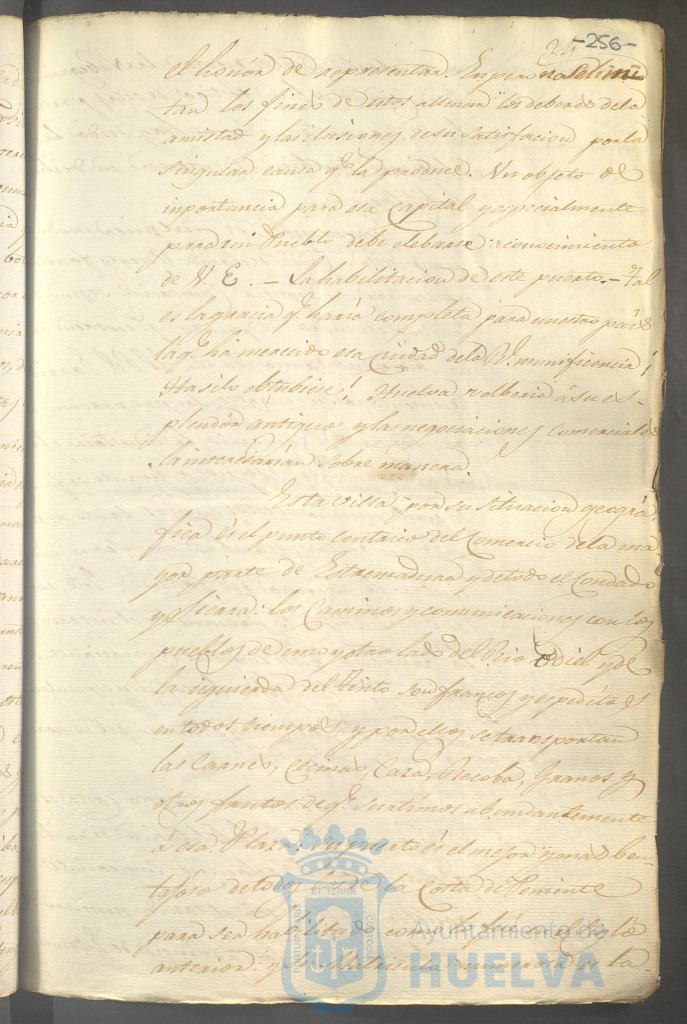 24 -256-
el honór de representar. Empero no se limi
tan los fines de estos al llenar los deberes de la
amistad y las ilusiones de su satisfacion por la
singular causa q.e la produce. Un objeto de
inportancia para esa Capital y especialmente
para mi Pueblo debe elebarse: reconocimiento
de V. E. - La habilitacion de este puerto. - Tal
es la gracia q.e haria completa para nuestro país
la q.e ha merecido esa Ciudad de la R.l munificencia!
Ha si lo obtubiese! Huelva volberia á su es-
plendór antiguo y las negociaciones comerciales
la interesarian sobre manera.
Esta villa por su situacion geográ
fica és el punto centrico del Comercio de la ma
yor parte de Estremadura y de todo el Condado
y Sierra: los Caminos y comunicaciones con los
pueblos de uno y otro lado del Rio Odiel y de
la izquierda del Tinto son francos y espeditos
en todos tiempos, y por ellos se transportan
las Carnes, Cecinas, Caza, Recoba, Granos y
otros frutos de q.e surtimos abundantemente
á esa Plaza: su puerto és el mejor y mas ben
tajoso de todos los de la Costa de Poniente
para ser habilitado como lo fué en el Siglo
anterior: y la Matricula numerosa de la
PORTUS MARIS ET TERRE CUSTODIA
Ayuntamiento de
HUELVA